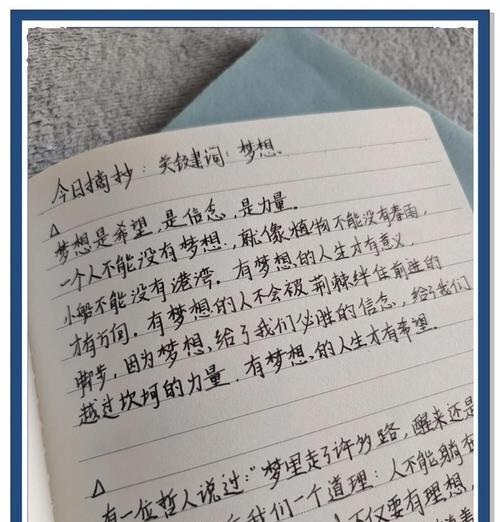 今日摘抄：关键词：梦想.
△
梦想是希望,是信念,是力量。
一个人不能没有梦想.,就像植物不能没有春雨,
小船不能没有港湾.有梦想.的人生才有意义.
才有方向.有梦想.的人不会被荆棘绊住前进的
脚步,因为梦想,给了我们必胜的信念,给了我们
越过坎坷的力量.有梦想,的人生才有希望.
△
有一位哲人说过:"梦里走了许多路,醒来还是
我们一个道理:人不能躺在
不仅要有理想,